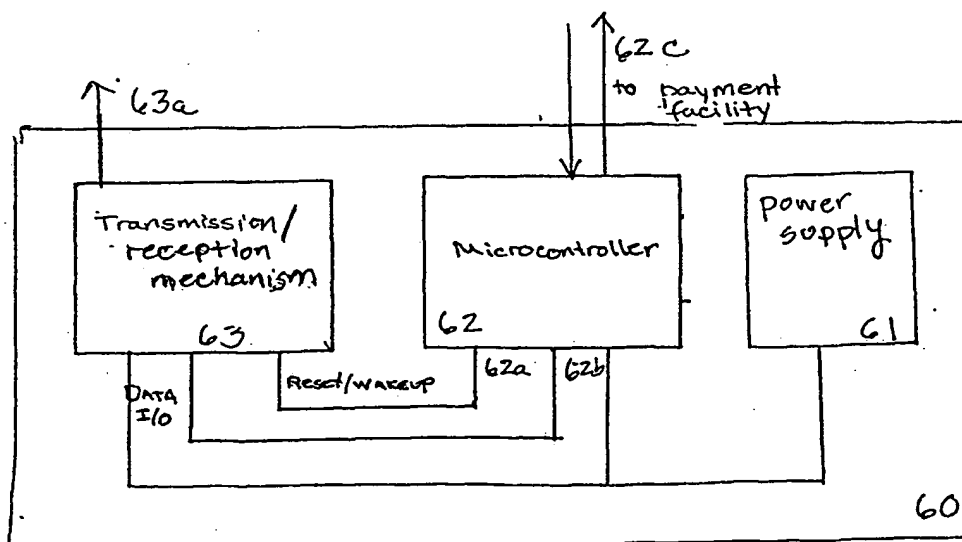 62c
to payment
facility
63a
Transmission/
reception
mechanism
63
Microcontroller
62
power
supply
61
DATA
I/O
Reset/WAKEUP
62a
62b
60